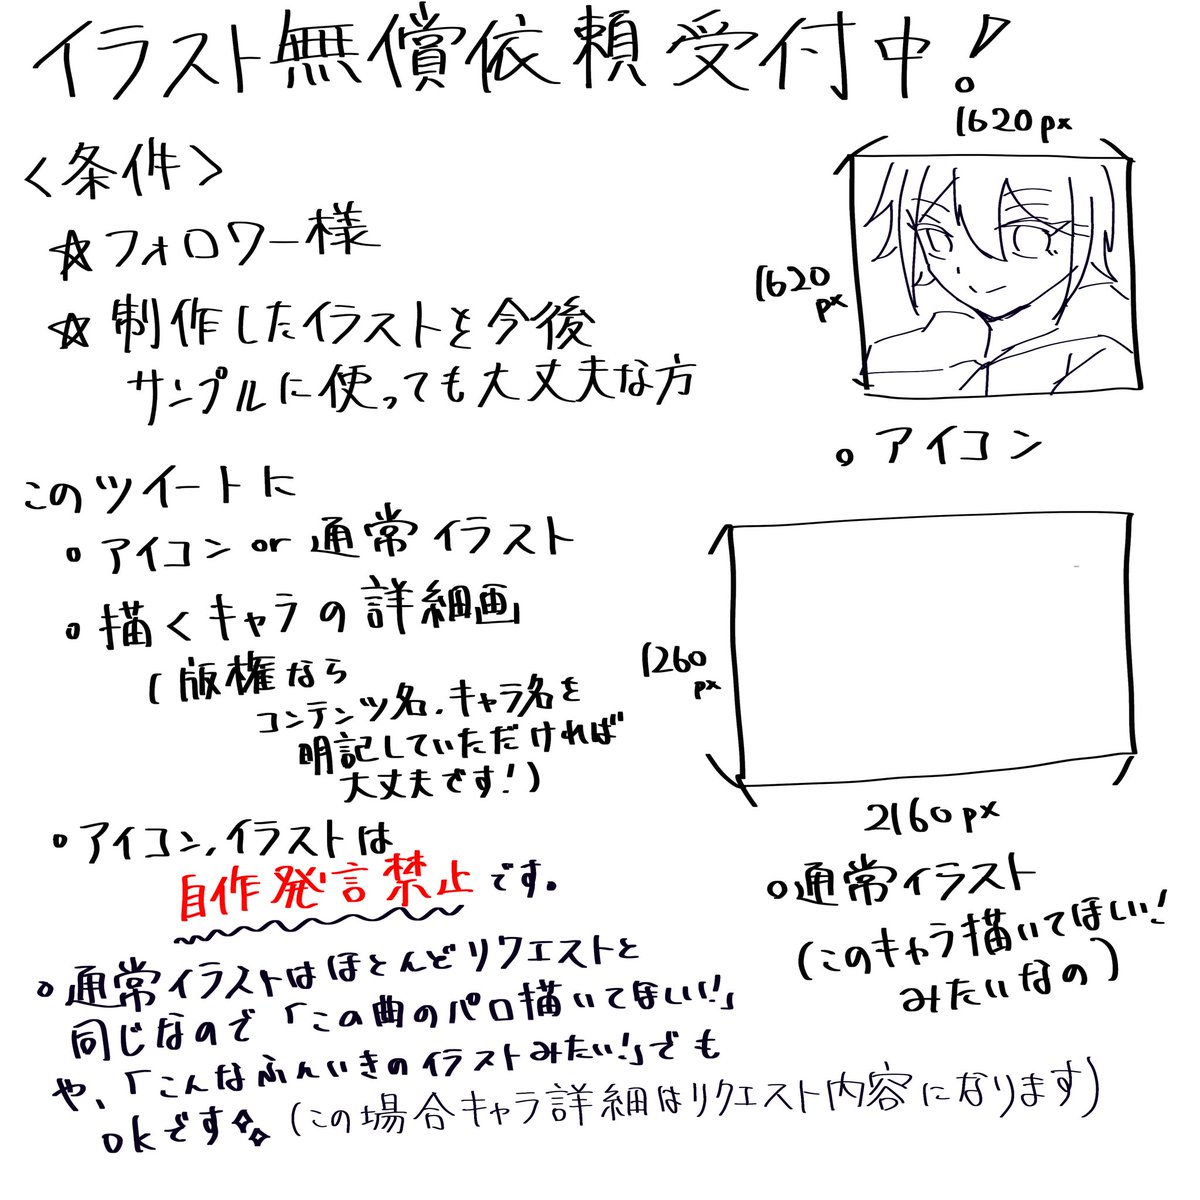 イラスト無償依頼受付中!
<条件>
☆フォロワー様
☆制作したイラストを今後
サンプルに使っても大丈夫な方
1620px
1620
px
。アイコン
このツイートに
。アイコンor通常イラスト
。描くキャラの詳細画
(版権なら
コンテンツ名、キャラ名を
明記していただければ
大丈夫です!)
。アイコン、イラストは
自作発言禁止です。
1260
px
2160px
。通常イラスト
(このキャラ描いてほしい!
みたいなの)
。通常イラストはほとんどリクエストと
同じなので「この曲のパロ描いてほしい!」
や、「こんなふんいきのイラストみたい!」でも
okです(この場合キャラ詳細はリクエスト内容になります)